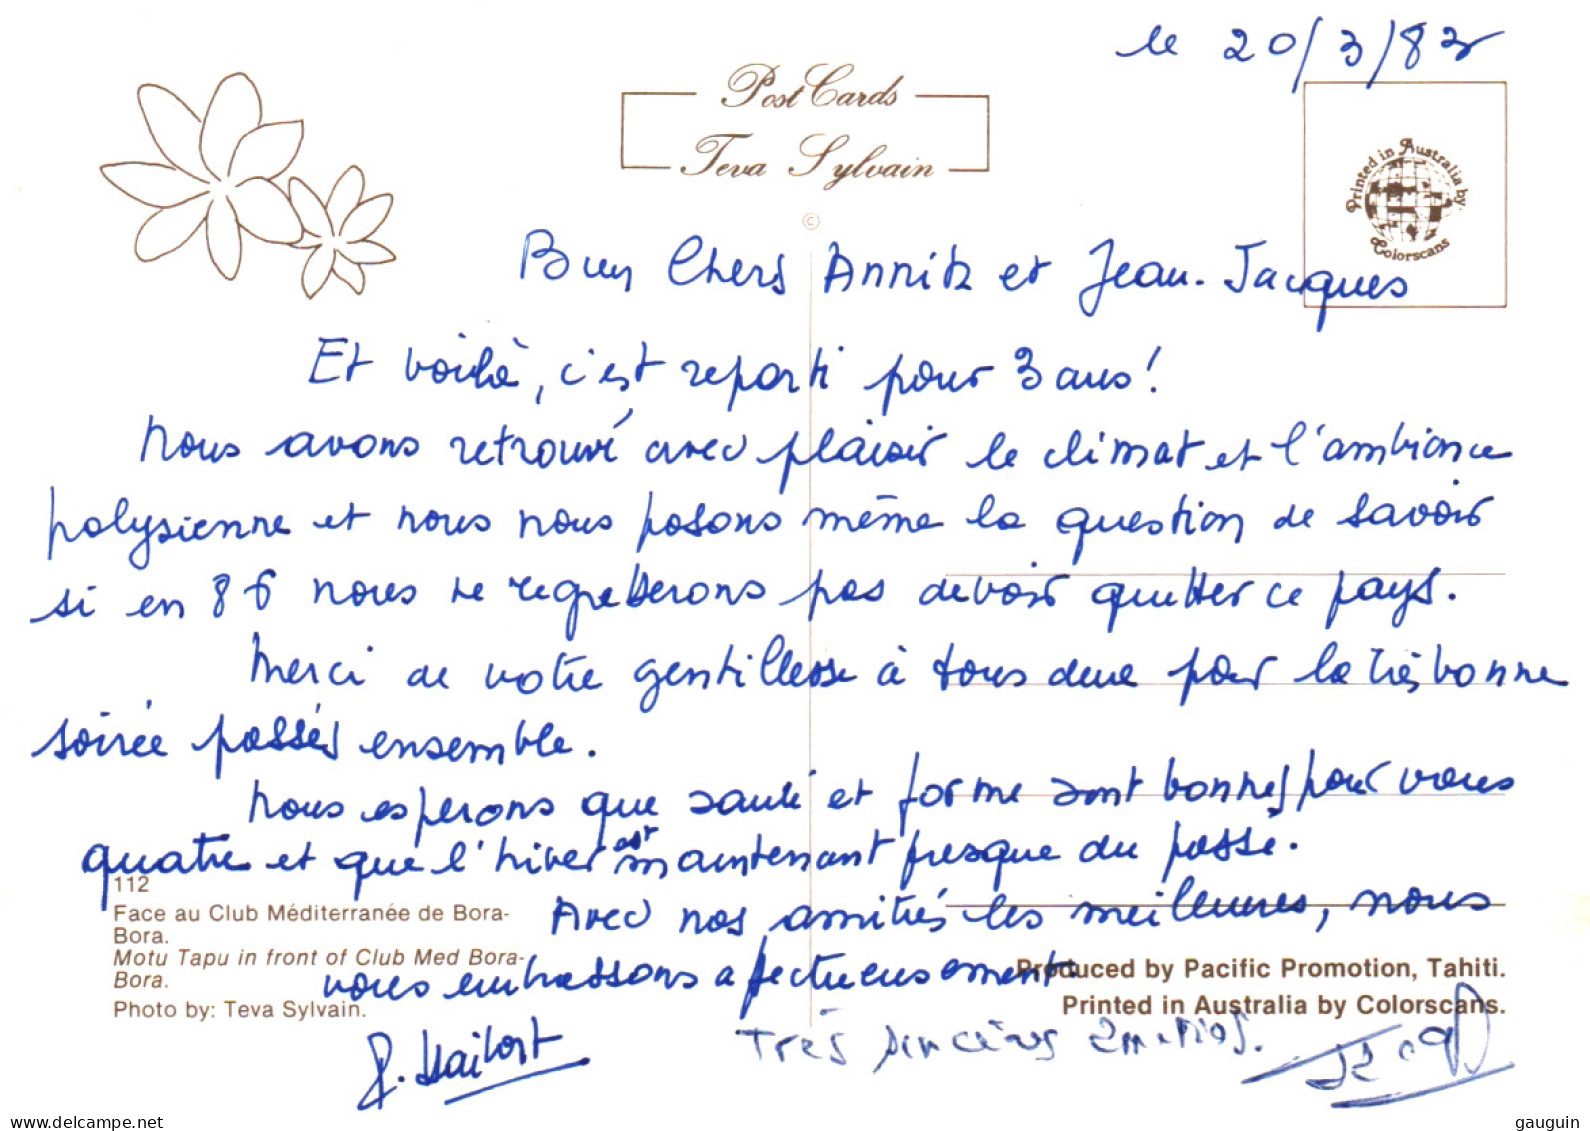 le 20/3/83
Post Cards
Teva Sylvain
©
Printed in Australia by
Colorscans
Bien Chers Annick et Jean-Jacques
Et voilà, c'est reparti pour 3 ans!
Nous avons retrouvé avec plaisir le climat et l'ambiance
polysienne et nous nous posons même la question de savoir
si en 86 nous ne regretterons pas devoir quitter ce pays.
Merci de votre gentillesse à tous deux pour la très bonne
soirée passées ensemble.
Nous esperons que santé et forme sont bonnes pour vous
quatre et que l'hiver est maintenant presque du passé.
Avec nos amitiés les meilleures, nous
vous embrassons afectueusement
112
Face au Club Méditerranée de Bora-
Bora.
Motu Tapu in front of Club Med Bora-
Bora.
Photo by: Teva Sylvain.
Produced by Pacific Promotion, Tahiti.
Printed in Australia by Colorscans.
Très sincères amitiés.
www.delcampe.net
gauguin